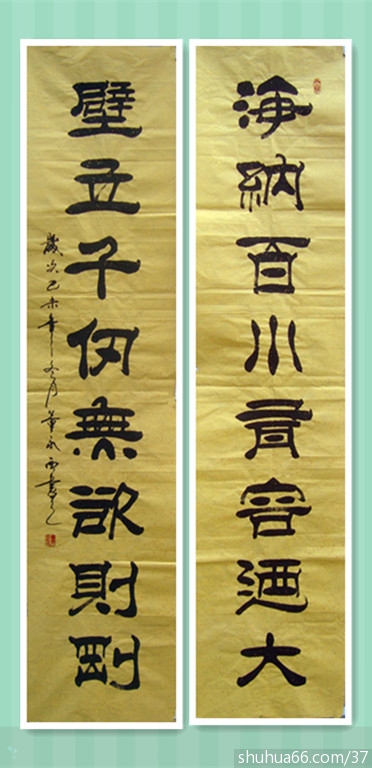 海納百川有容迺大
壁立千仞無欲則剛
歲次己未年冬月董永西書之
shuhua66.com/37